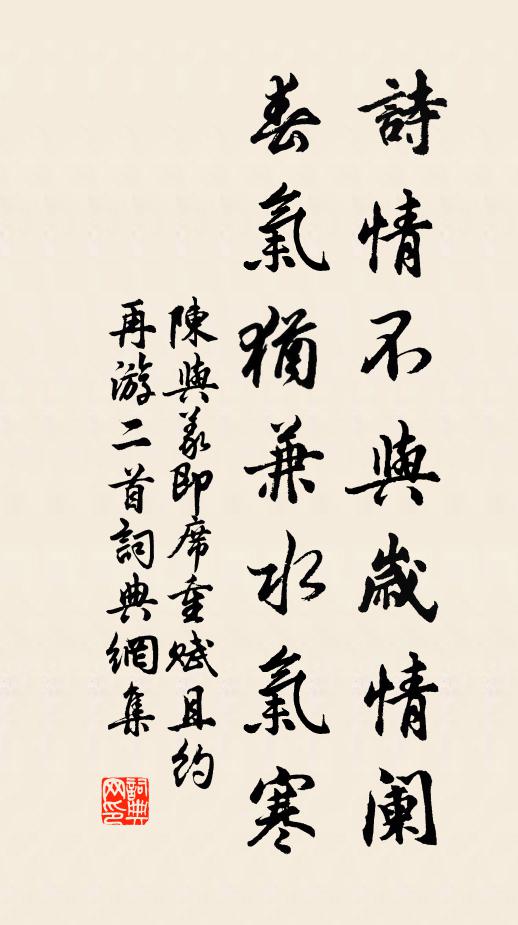 詩情不與歲情闌
春氣猶兼水氣寒
陳與義即席重賦且約
再游二首詞典網集
詞典
网印